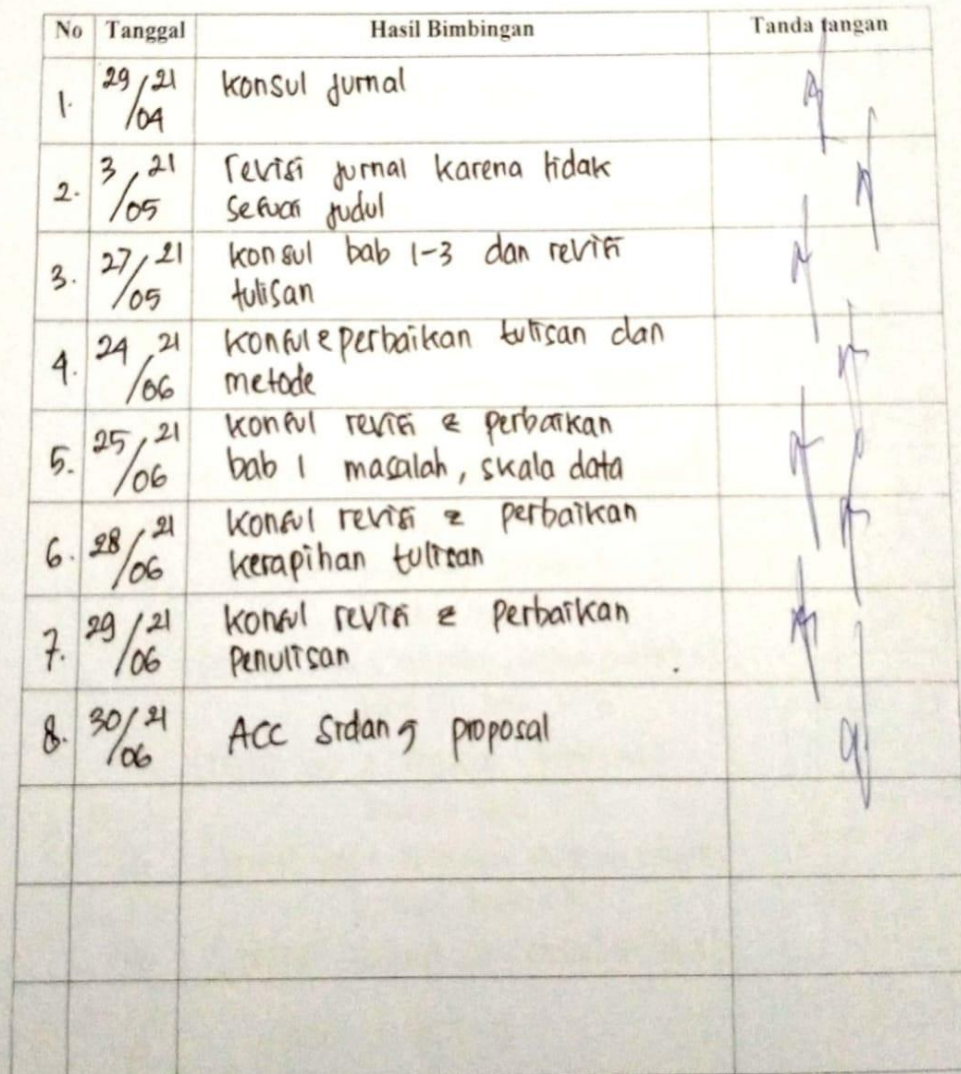 No Tanggal Hasil Bimbingan Tanda tangan
1. 29/04 21 konsul jurnal
2. 3/05 21 revisi jurnal karena tidak
sesuai judul
3. 27/05 21 konsul bab 1-3 dan revisi
tulisan
4. 24/06 21 konsul & perbaikan tulisan dan
metode
5. 25/06 21 konsul revisi & perbaikan
bab 1 masalah, skala data
6. 28/06 21 konsul revisi & perbaikan
kerapihan tulisan
7. 29/06 21 konsul revisi & perbaikan
penulisan
8. 30/06 21 ACC Sidang proposal